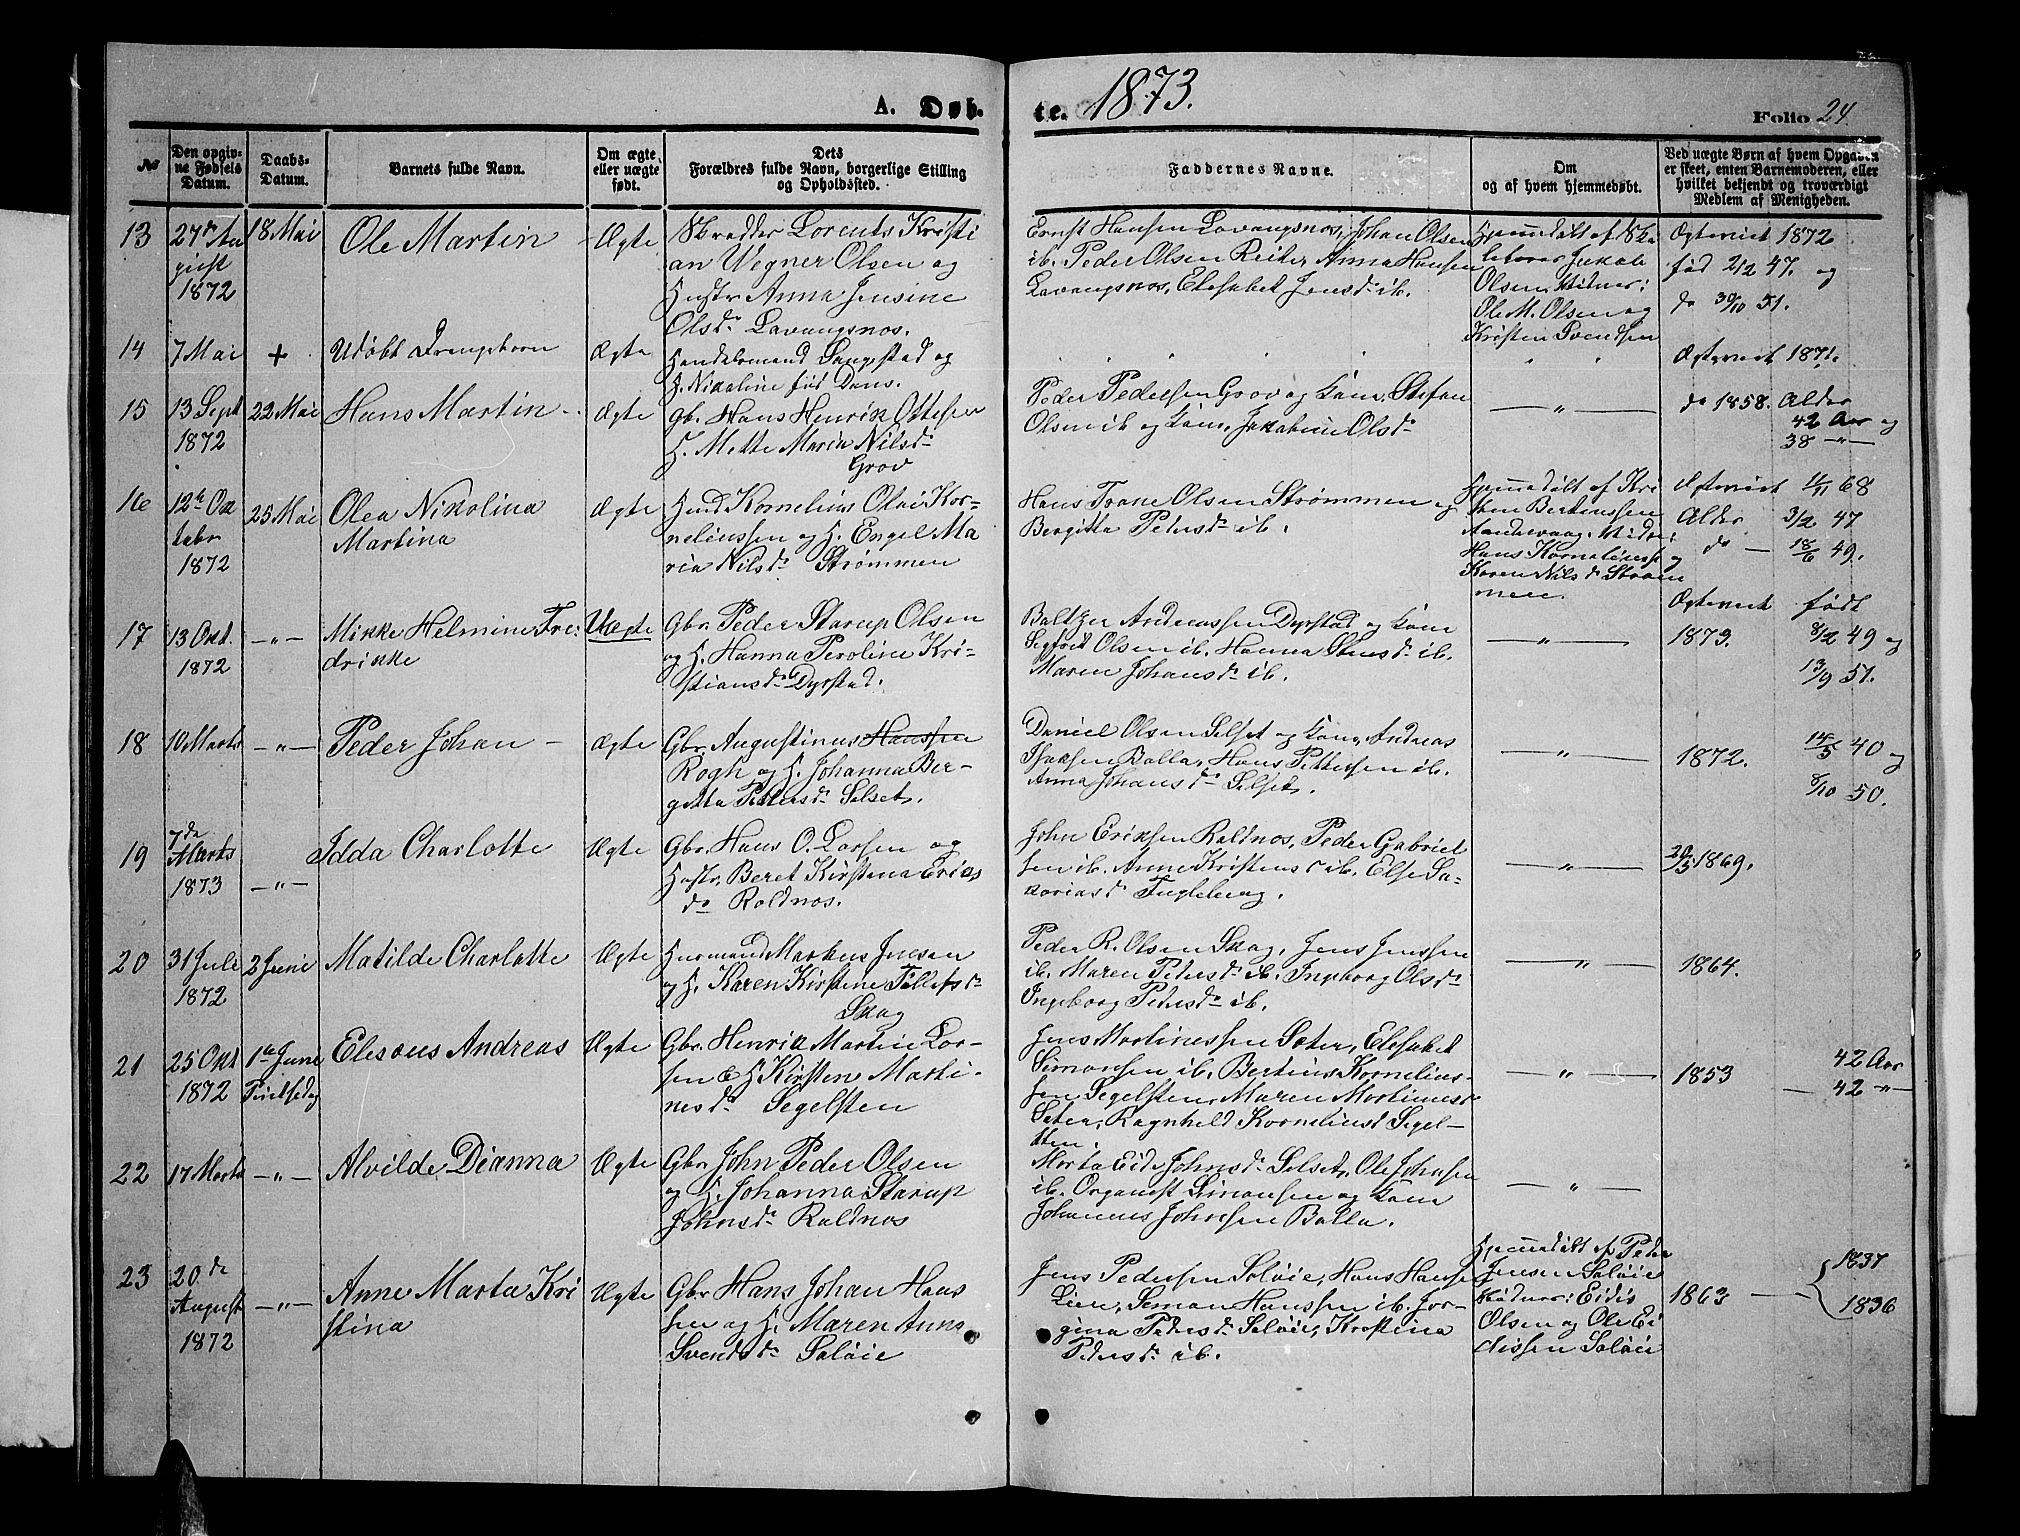 A. Døb-
te. 1873.
Folio 24.
No
Den opgiv-
ne Fødsels
Datum.
Daabs-
Datum.
Barnets fulde Navn.
Om ægte
eller uægte
født.
Dets
Forældres fulde Navn, borgerlige Stilling
og Opholdssted.
Faddernes Navne.
Om
og af hvem hjemmedøbt.
Ved uægte Børn af hvem Opgaven
er skeet, enten Barnemoderen, eller
hvilket bekjendt og troværdigt
Medlem af Menigheden.
13
27de Au
gust
1872
18 Mai
Ole Martin
Ægte
Skrædder Lorents Kristi
an Wegner Olsen og
Hustr. Anna Jensine
Olsdr Lavangsnos.
Ernst Hansen Lavangsnos, Johan Olsen
ib. Peder Olsen Reiter, Anna Hansen
Lavangsnos, Elesabet Jensdr ib.
Hjemmedøbt af Sko
lelærer Jakob
Olsen. Vidner:
Ole M. Olsen og
Kristen Svendsen
Ægteviet 1872
fød 2/12 47. og
do 30/10 51.
14
7 Mai
+
Udøbt Drengebarn
Ægte
Handelsmand Langstad og
H. Nikoline fød Dons.
" " " " " "
Ægteviet 1871.
15
13 Sept
1872
22 Mai
Hans Martin
Ægte
Gb. Hans Henrik Ottesen
H. Mette Maria Nilsdr
Grov
Peder Pedersen Grov og Kone, Stefan
Olsen ib og Kone, Jakobine Olsdr
— " —
do 1858. Alder
42 Aar og
38 — " —
16
12te Ok
tobr
1872
25 Mai
Olea Nikolina
Martina
Ægte
Husmd Kornelius Olai Kor-
neliussen og H. Engel Ma
ria Nilsdr Strømmen
Hans Trane Olsen Strømmen og
Bergitta Pedersdr ib.
Hjemmedøbt af Kri
sten Bertinssen
Aandevaag. Vidner:
Hans Korneliuss. og
Karen Nilsdr Strøm
men.
Ægteviet 1/11 68
Alder 3/2 47
do — 18/6 49.
17
13 Okt.
1872
— " —
Mikke Helmine Fre:
drikke
Uægte
Gbr. Peder Starup Olsen
og H. Hanna Peroline Kri-
stiansdr Dyrstad.
Baltzer Andreassen Dyrstad og Kone
Segfrit Olsen ib. Hanna Stensdr ib.
Maren Johansdr ib.
— " —
Ægteviet født
1873. 8/2 49 og
13/9 51.
18
10 Marts
— " —
Peder Johan
Ægte
Gbr. Augustinus Hanssen
Rogh og H. Johanna Ber-
gitta Pettersdr Selset.
Daniel Olsen Selset og Kone, Andreas
Isaksen Balla, Hans Pettersen ib.
Anna Johansdr Selset.
— " —
1872. 14/5 40 og
8/10 50.
19
7de
Marts
1873
— " —
Idda Charlotte
Ægte
Gbr. Hans O. Larsen og
Hustr. Beret Kirstena Eriks
dr Roldnos.
John Eriksen Roldnos, Peder Gabriel
sen ib. Anne Kristensdr ib. Else Sa-
koriasdr Ingleberg.
— " —
20/5 1869.
20
31 Jule
1872
2 Junie
Matilde Charlotte
Ægte
Husmand Markus Jensen
og H. Karen Kirstine Tollefsdr
Skog
Peder R. Olsen Skog, Jens Jenssen
ib. Maren Petersdr ib. Ingborg Olsdr
Ingeborg Petersdr ib.
— " —
1864.
21
25 Okt
1872
1te June
Pintsedag
Elesæus Andreas
Ægte
Gbr. Henrik Martin Lor-
sen & H. Kirsten Marti-
nesdr Segelsten
Jens Martinussen Sæter, Elesabet
Simonsen ib. Bertius Kornelius-
sen Segelsten, Maren Martinusdr
Sæter, Ragnhild Korneliusd Segel-
sten.
— " —
1853 42 Aar
— 42 "
22
17 Marts
— " —
Alvilde Dianna
Ægte
Gbr. John Peder Olsen
og H. Johanna Starup
Johnsdr Roldnos
Marta Eide Johnsdr Selset, Ole Johnsen
ib. Organist Simonsen og Kone
Johannes Johnsen Balla.
— " —
23
20de
August
1872
— " —
Anne Marta Kri
stina
Ægte
Gbr Hans Johan Hans
sen og H. Maren Anna
Svendsdr Saløie
Jens Pedersen Saløie, Hans Hanse
Lien, Simon Hanssen ib. Jør-
gina Pedersdr Saløie, Kristina
Pedersdr ib.
Hjemmedøbt af Peder
Jensen Saløie
Vidner: Eidis
Olsen og Ole Ei
dissen Saløie
1863 — 1837
1836